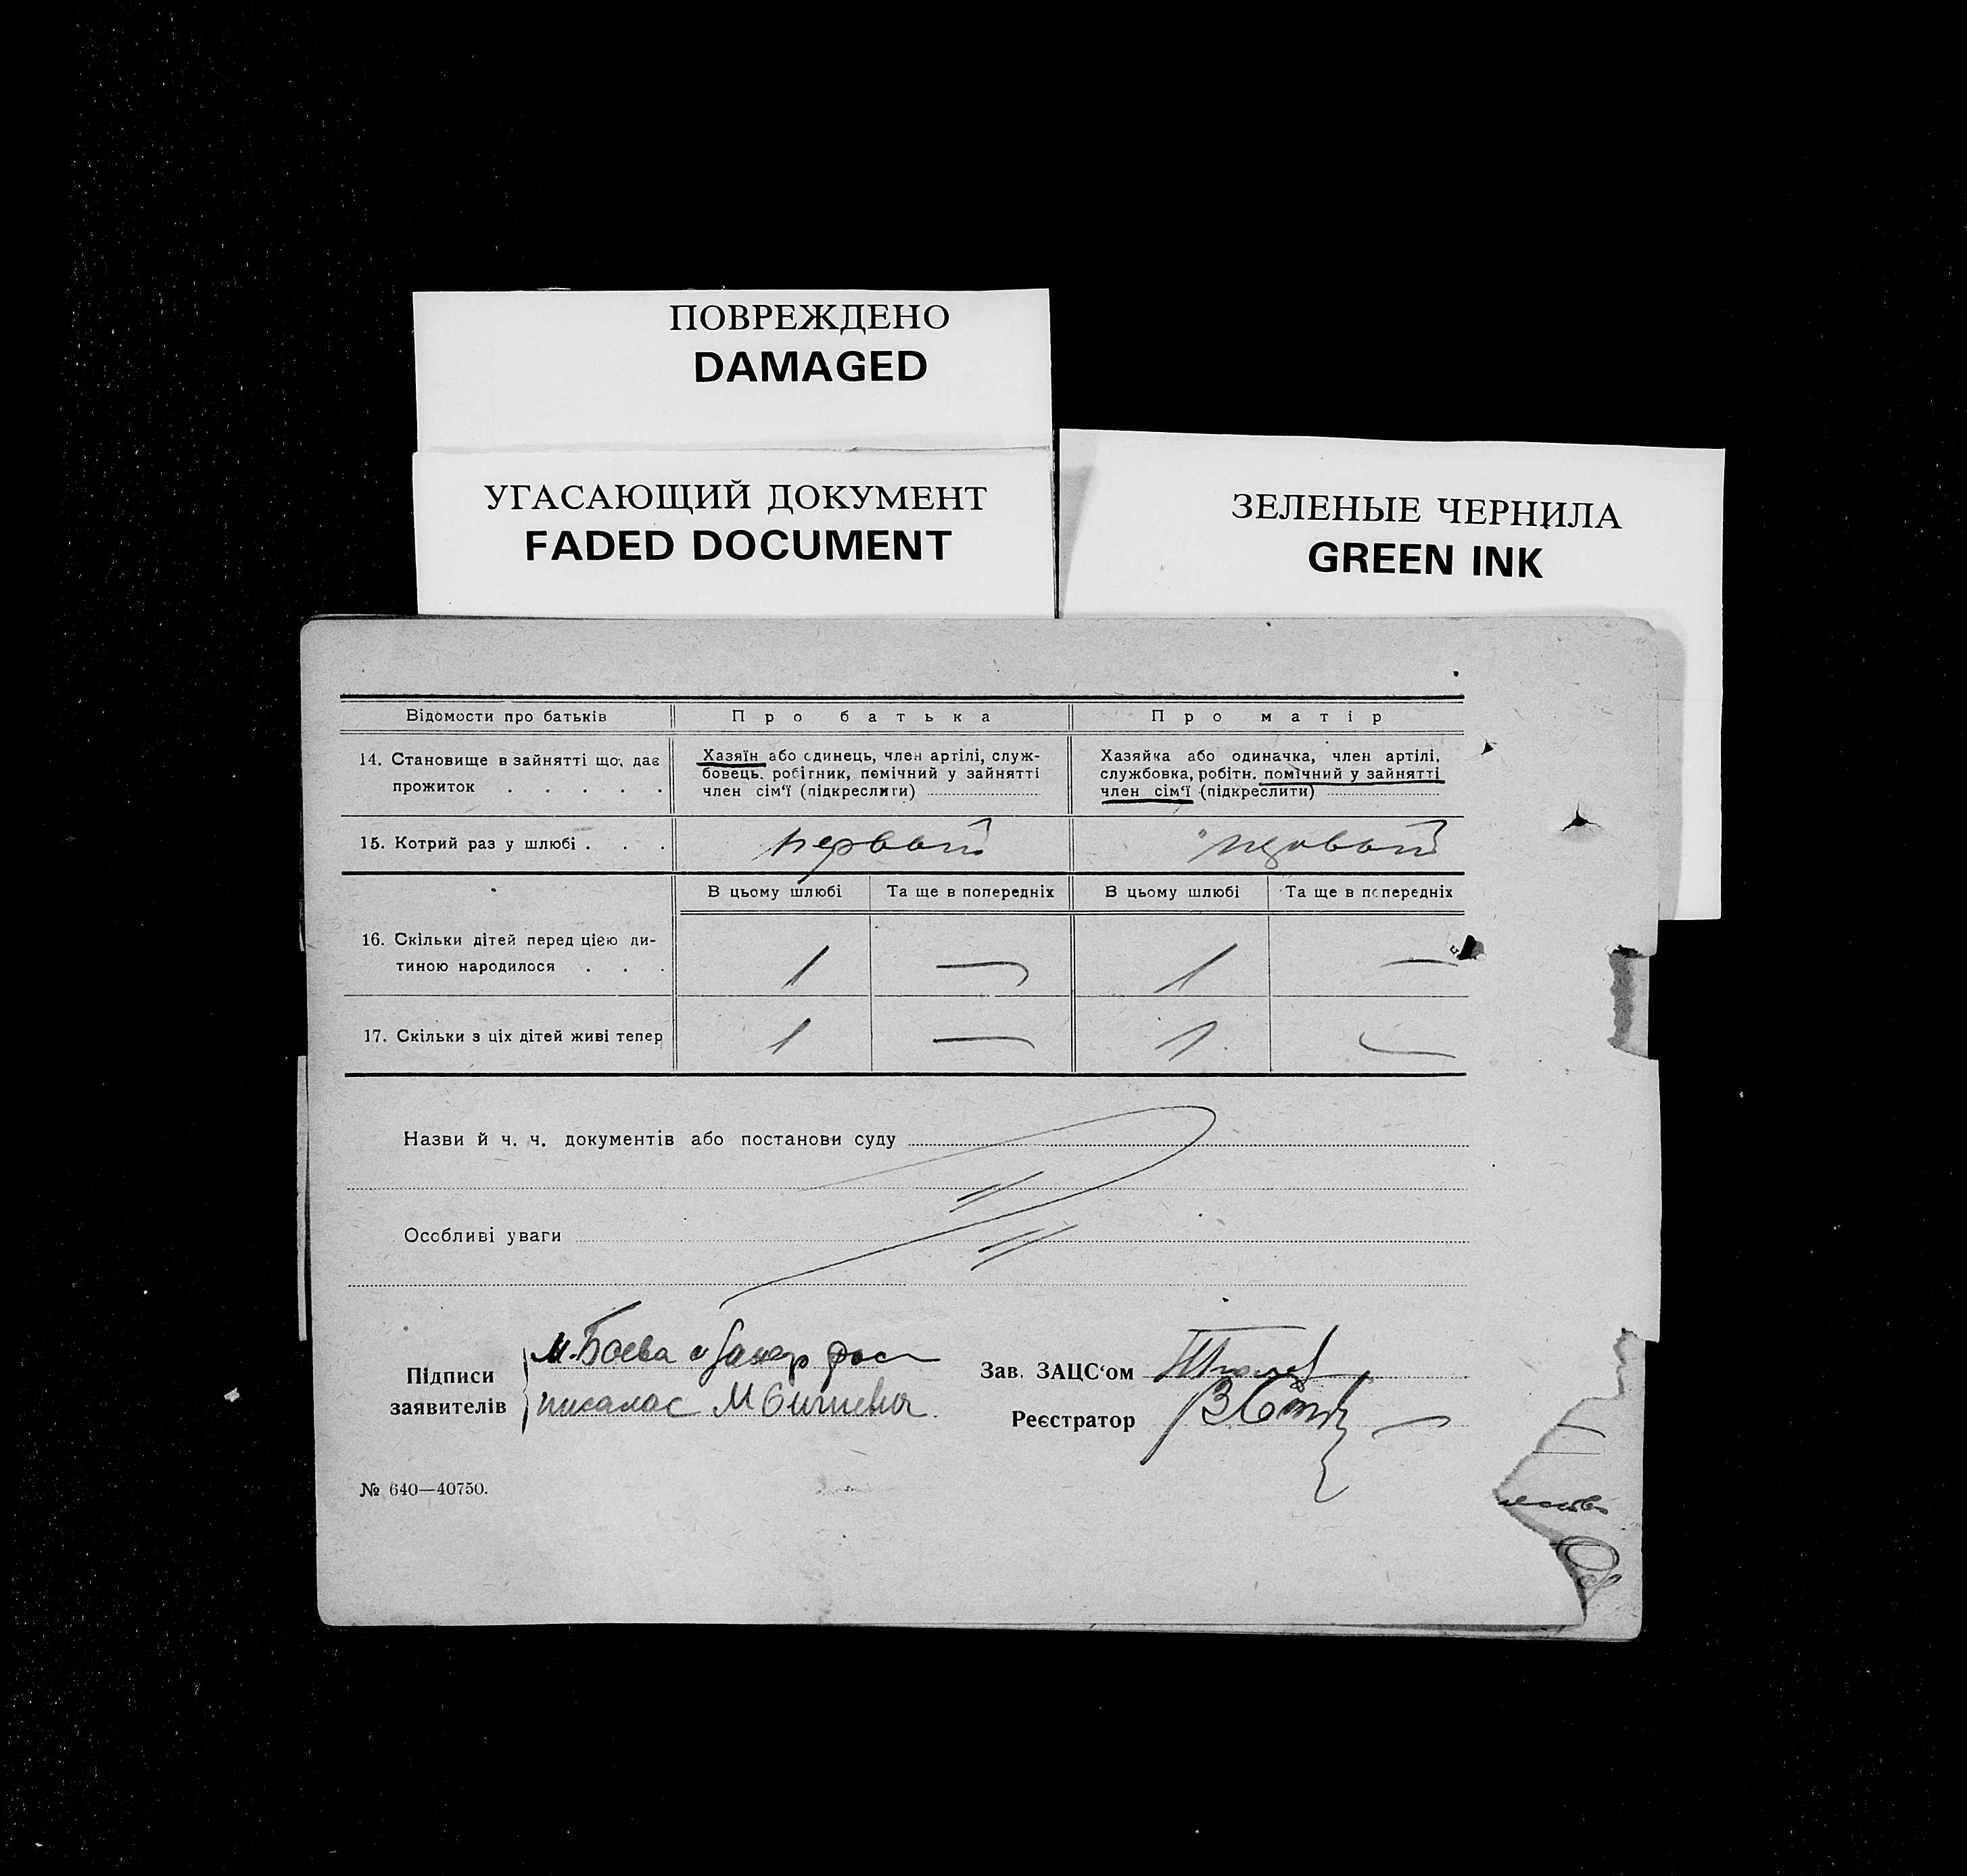 ПОВРЕЖДЕНО
DAMAGED
УГАСАЮЩИЙ ДОКУМЕНТ
FADED DOCUMENT
ЗЕЛЕНЫЕ ЧЕРНИЛА
GREEN INK
Відомости про батьків Про батька Про матір
14. Становище в зайнятті що, дає
прожиток . . . . .
Хазяїн або одинець, член артілі, служ-
бовець, робітник, помічний у зайнятті
член сім'ї (підкреслити)
Хазяйка або одиначка, член артілі,
службовка, робітн. помічний у зайнятті
член сім'ї (підкреслити)
15. Котрий раз у шлюбі . . . первый первый
В цьому шлюбі Та ще в попередніх В цьому шлюбі Та ще в попередніх
16. Скільки дітей перед цією ди-
тиною народилося . . . 1 — 1 —
17. Скільки з ціх дітей живі тепер 1 — 1 —
Назви й ч. ч. документів або постанови суду
Особливі уваги
Підписи
заявителів
М. Боева
Зав. ЗАЦС'ом
Реєстратор
№ 640—40750.